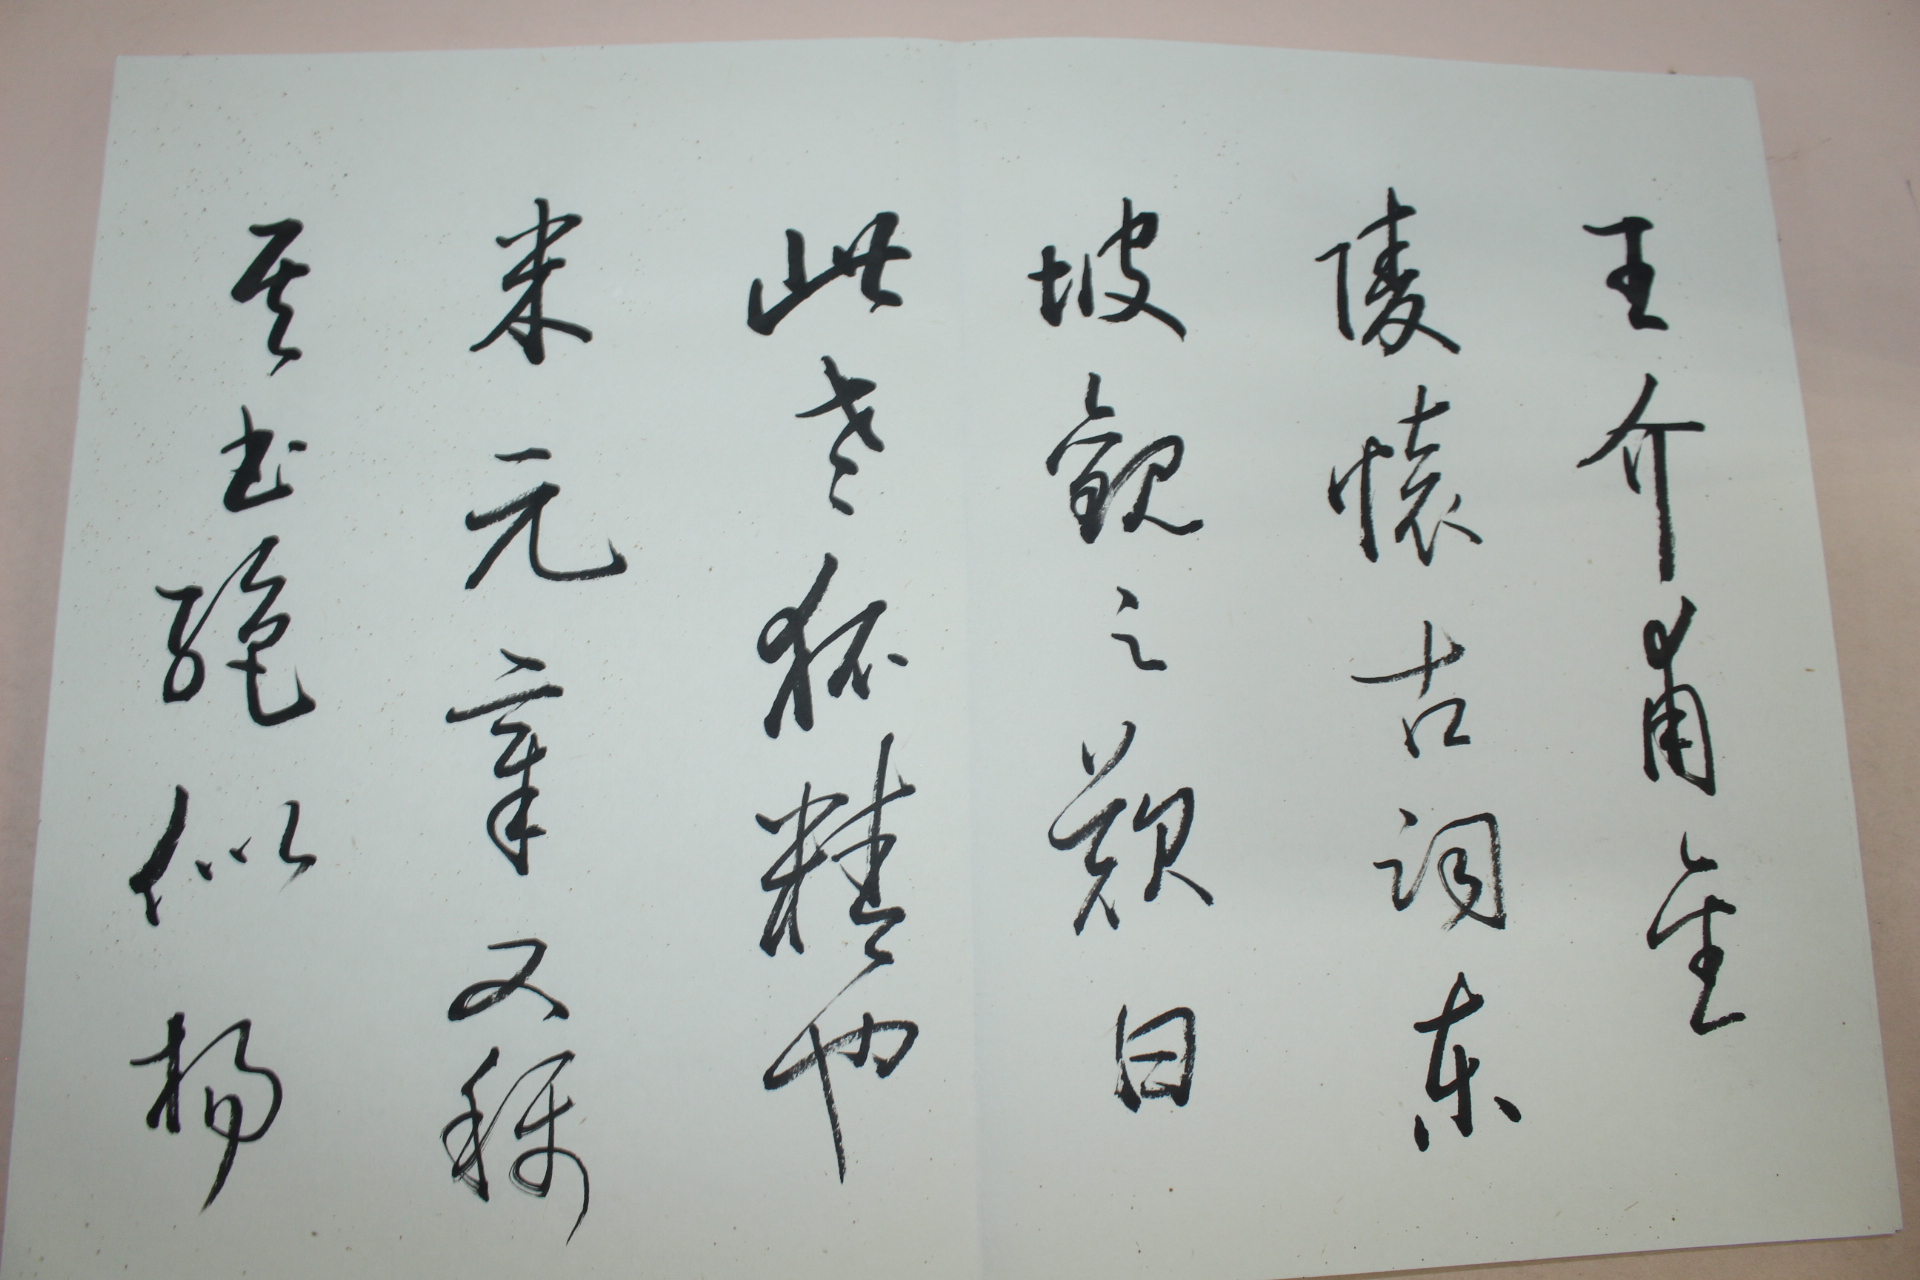 王介甫金
陵懷古词东
坡觀之歎曰
此老狐精也
米元章又稱
其书絶似楊